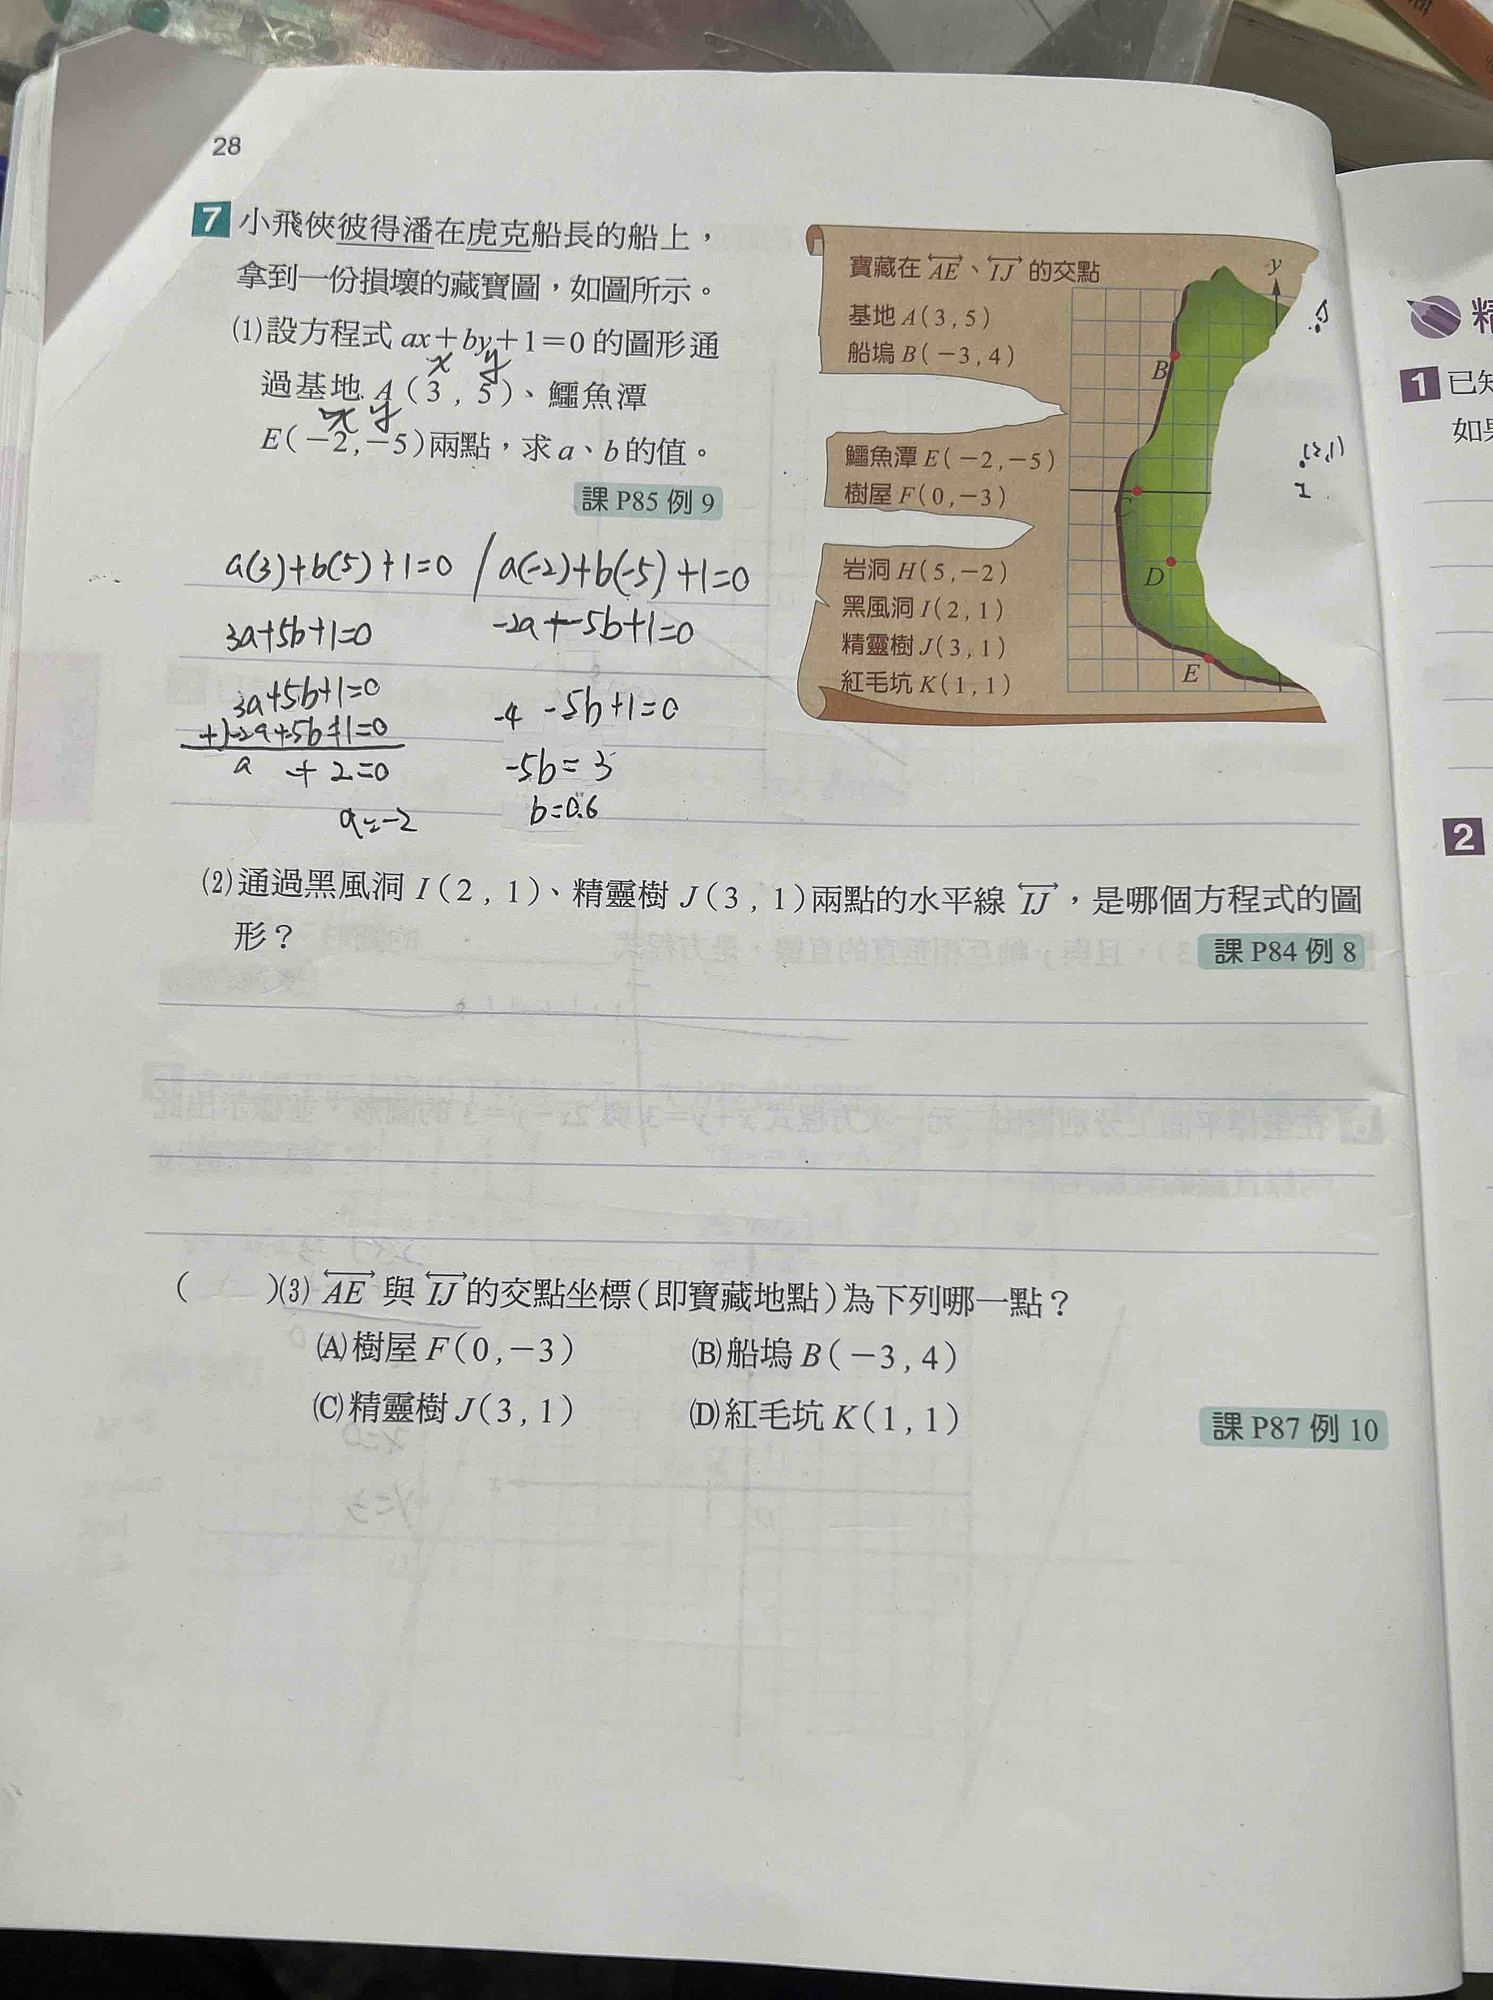 28
7 小飛俠彼得潘在虎克船長的船上，
拿到一份損壞的藏寶圖，如圖所示。
⑴設方程式 ax＋by＋1＝0 的圖形通
x y
過基地 A（3 , 5）、鱷魚潭
x y
E（－2,－5）兩點，求 a、b 的值。
課 P85 例 9
寶藏在 AE、IJ 的交點
基地 A（3 , 5）
船塢 B（－3 , 4）
鱷魚潭 E（－2,－5）
樹屋 F（0,－3）
岩洞 H（5,－2）
黑風洞 I（2 , 1）
精靈樹 J（3 , 1）
紅毛坑 K（1 , 1）
y
B
C
D
E
(3,1)
a(3)+b(5)+1=0 / a(-2)+b(-5)+1=0
3a+5b+1=0 -2a+-5b+1=0
3a+5b+1=0 -4 -5b+1=0
+)-2a+5b+1=0
a + 2=0 -5b=3
a=-2 b=0.6
⑵通過黑風洞 I（2 , 1）、精靈樹 J（3 , 1）兩點的水平線 IJ，是哪個方程式的圖
形？
課 P84 例 8
（ ）⑶ AE 與 IJ 的交點坐標（即寶藏地點）為下列哪一點？
(A)樹屋 F（0,－3） (B)船塢 B（－3 , 4）
(C)精靈樹 J（3 , 1） (D)紅毛坑 K（1 , 1）
課 P87 例 10
精
1 已知
如果
2